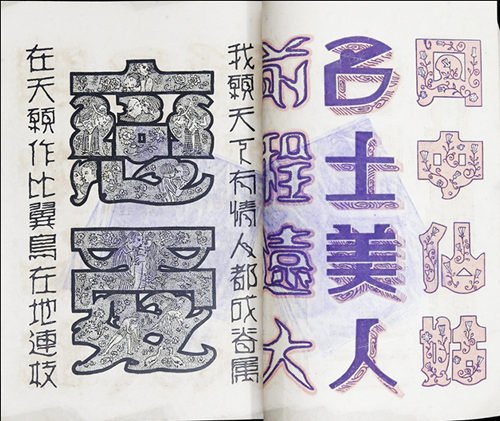 中仙
名士美人
前程遠大
我願天下有情人都成眷属
恋爱
在天願作比翼鳥在地連枝